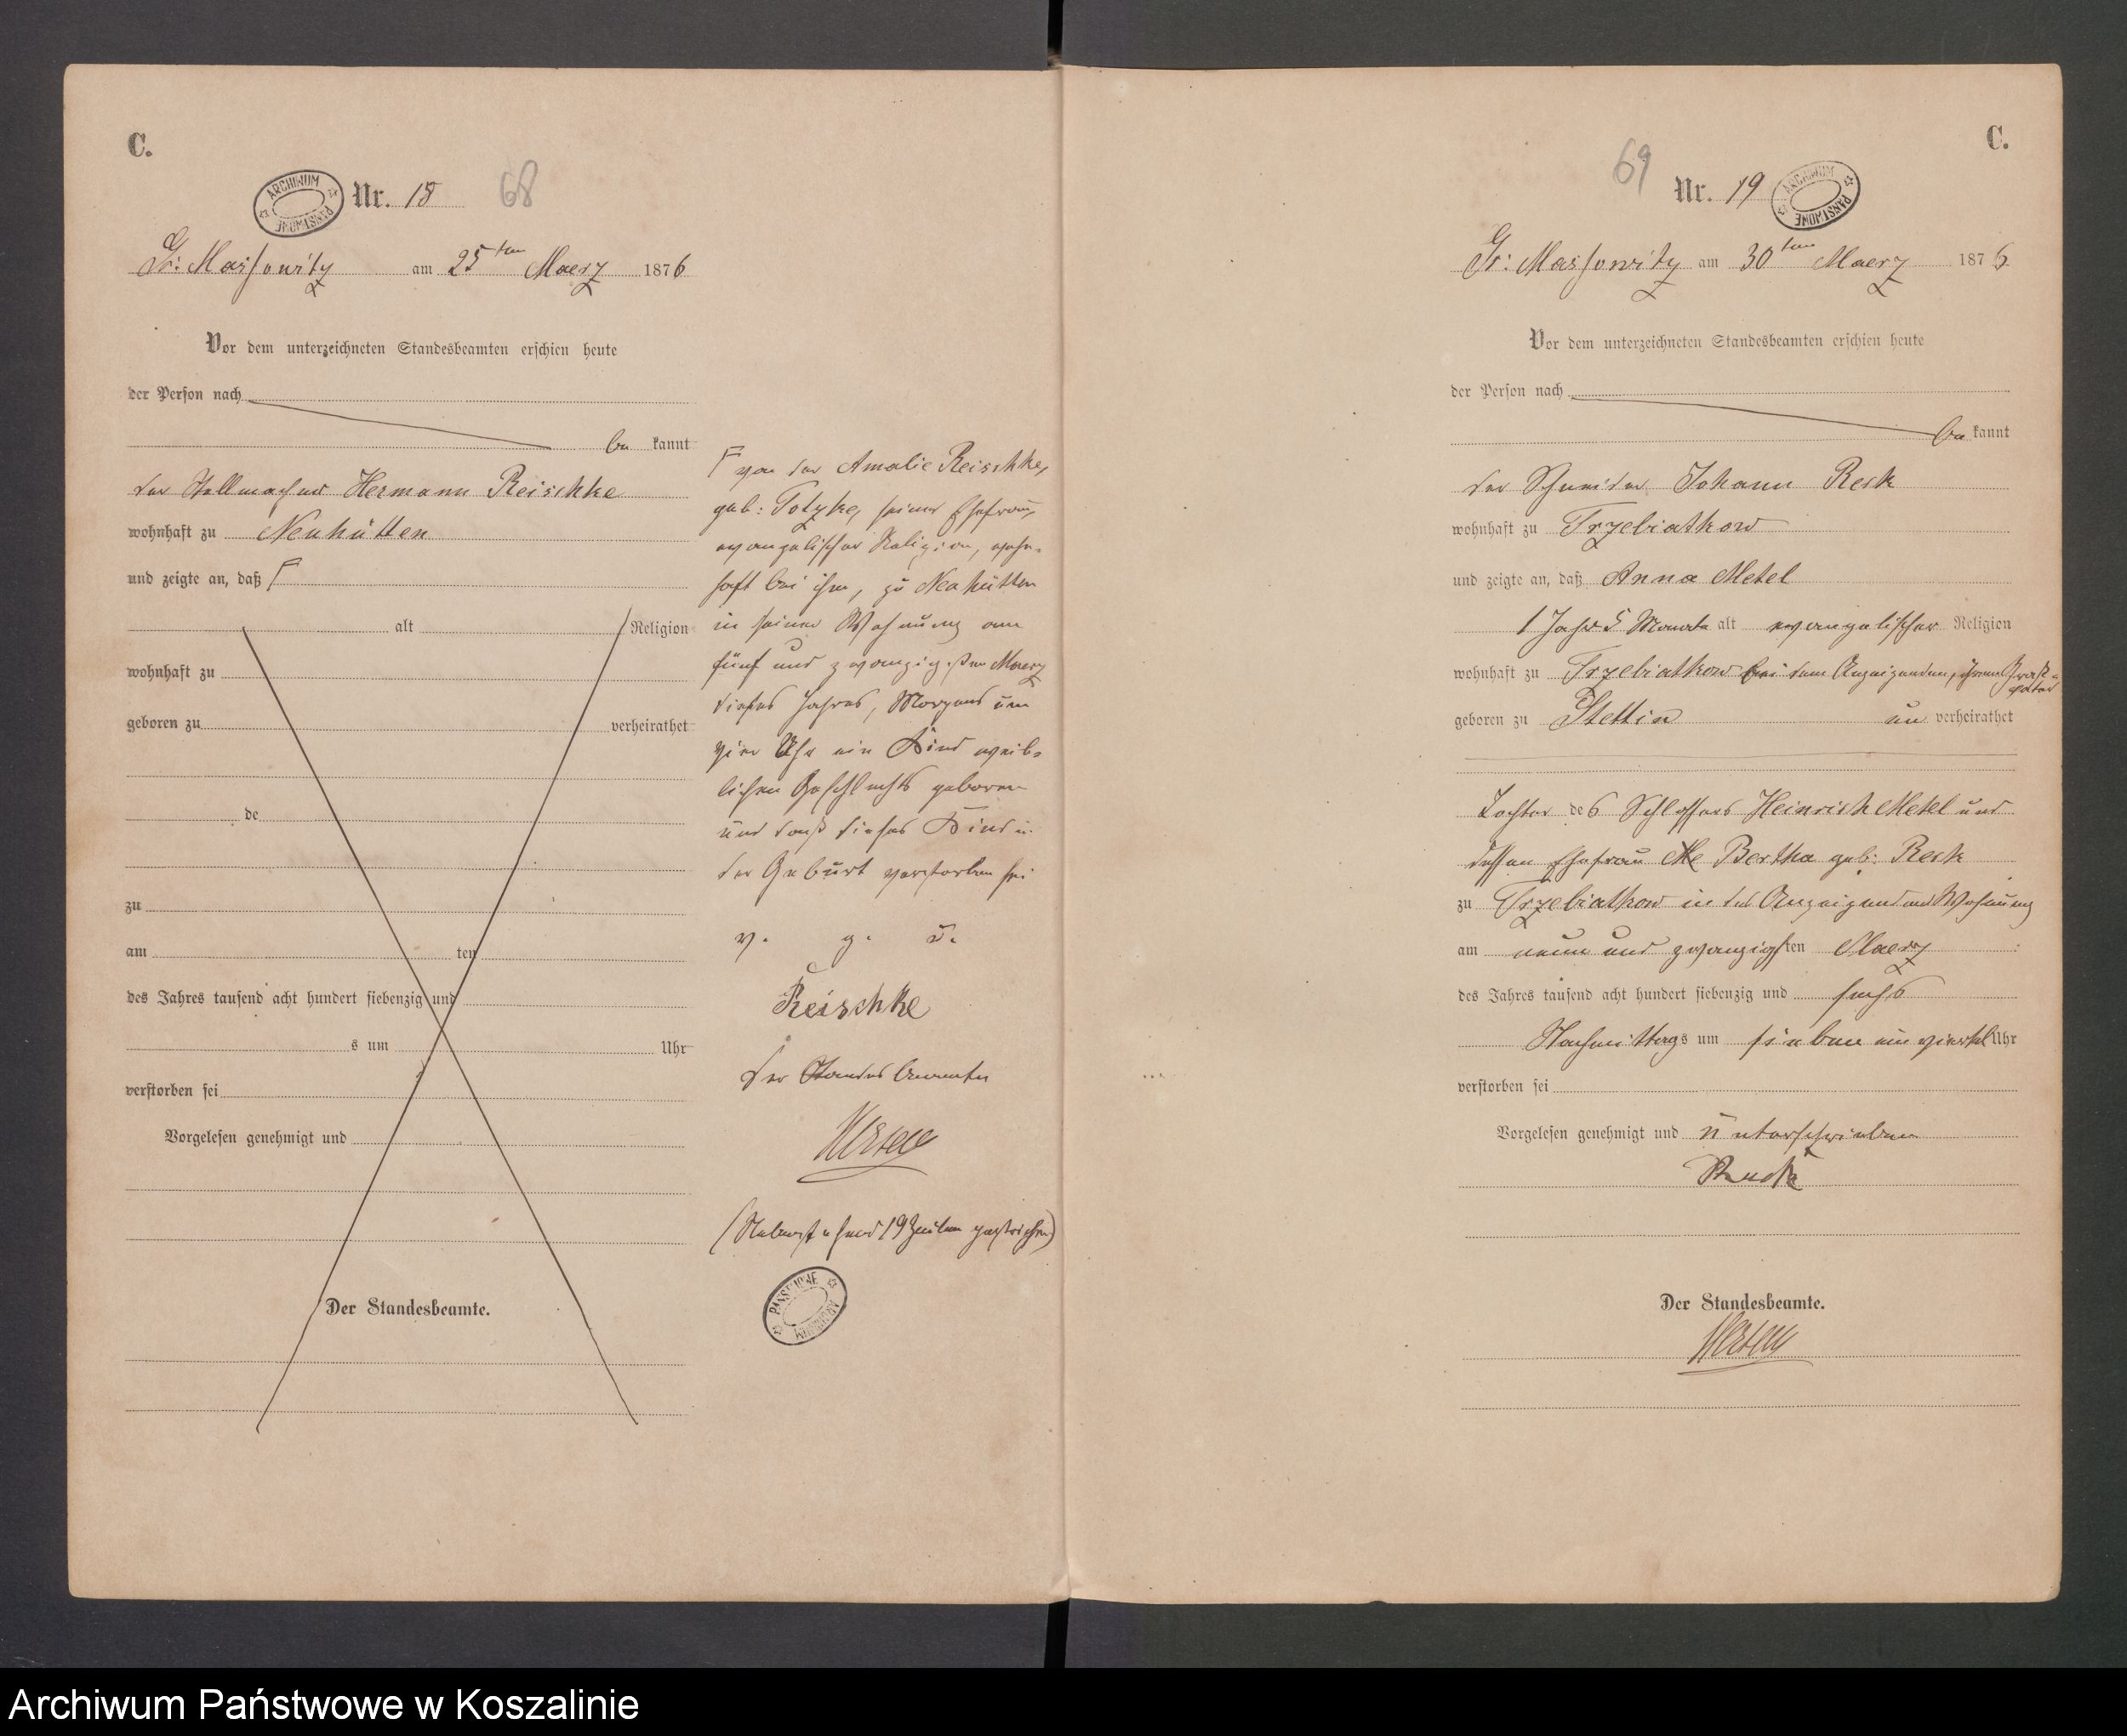 C.
Nr. 18
68
ARCHIWUM PAŃSTWOWE
Gr: Massowitz am 25ten Maerz 1876
Vor dem unterzeichneten Standesbeamten erschien heute
der Person nach
be kannt
der Stellmacher Hermann Reischke
wohnhaft zu Neuhütten
und zeigte an, daß Γ
alt Religion
wohnhaft zu
geboren zu verheirathet
de
zu
am ten
des Jahres tausend acht hundert siebenzig und
s um Uhr
verstorben sei
Vorgelesen genehmigt und
Der Standesbeamte.
Γ von der Amalie Reischke,
geb: Totzke, seiner Ehefrau,
evangelischer Religion, wohn-
haft bei ihm, zu Neuhütten
in seiner Wohnung am
fünf und zwanzigsten Maerz
dieses Jahres, Morgens um
vier Uhr ein Kind weib-
lichen Geschlechts geboren
und daß dieses Kind in
der Geburt verstorben sei
v. g. u.
Reischke
Der Standesbeamte
(Nebenstehend 19 Zeilen gestrichen)
PAŃSTWOWE ARCHIWUM
C.
69
Nr. 19
ARCHIWUM PAŃSTWOWE
Gr: Massowitz am 30ten Maerz 1876
Vor dem unterzeichneten Standesbeamten erschien heute
der Person nach
be kannt
der Schneider Johann Reck
wohnhaft zu Trzebiatkow
und zeigte an, daß Anna Metel
1 Jahr 5 Monate alt evangelischer Religion
wohnhaft zu Trzebiatkow bei dem Anzeigenden, ihrem Groß-
vater
geboren zu Stettin un verheirathet
Tochter des Schlossers Heinrich Metel und
dessen Ehefrau Me Bertha geb: Reck
zu Trzebiatkow in des Anzeigenden Wohnung
am neun und zwanzigsten Maerz
des Jahres tausend acht hundert siebenzig und sechs
Nachmittags um sieben ein viertel Uhr
verstorben sei
Vorgelesen genehmigt und unterschrieben
Reck
Der Standesbeamte.
Archiwum Państwowe w Koszalinie